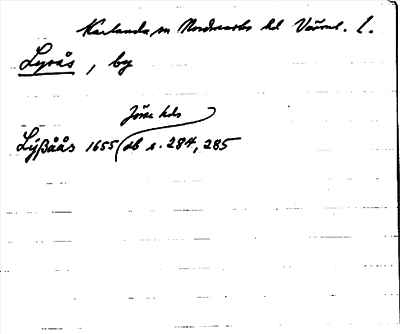 Karlanda sn Nordmarks hd Värml. l.
Lyrås, by
Jösse hds
Lÿßåås 1655 (db s. 284, 285